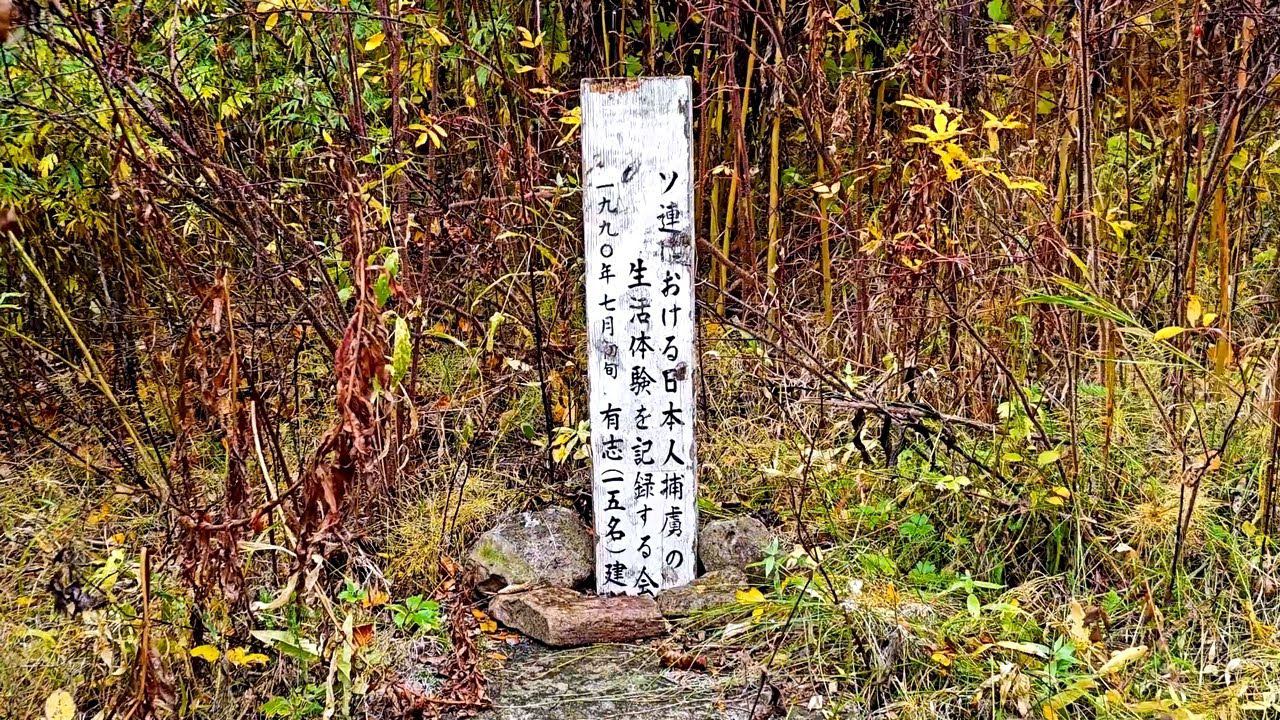 ソ連における日本人捕虜の
生活体験を記録する会
一九九〇年七月初旬 有志(一五名)建